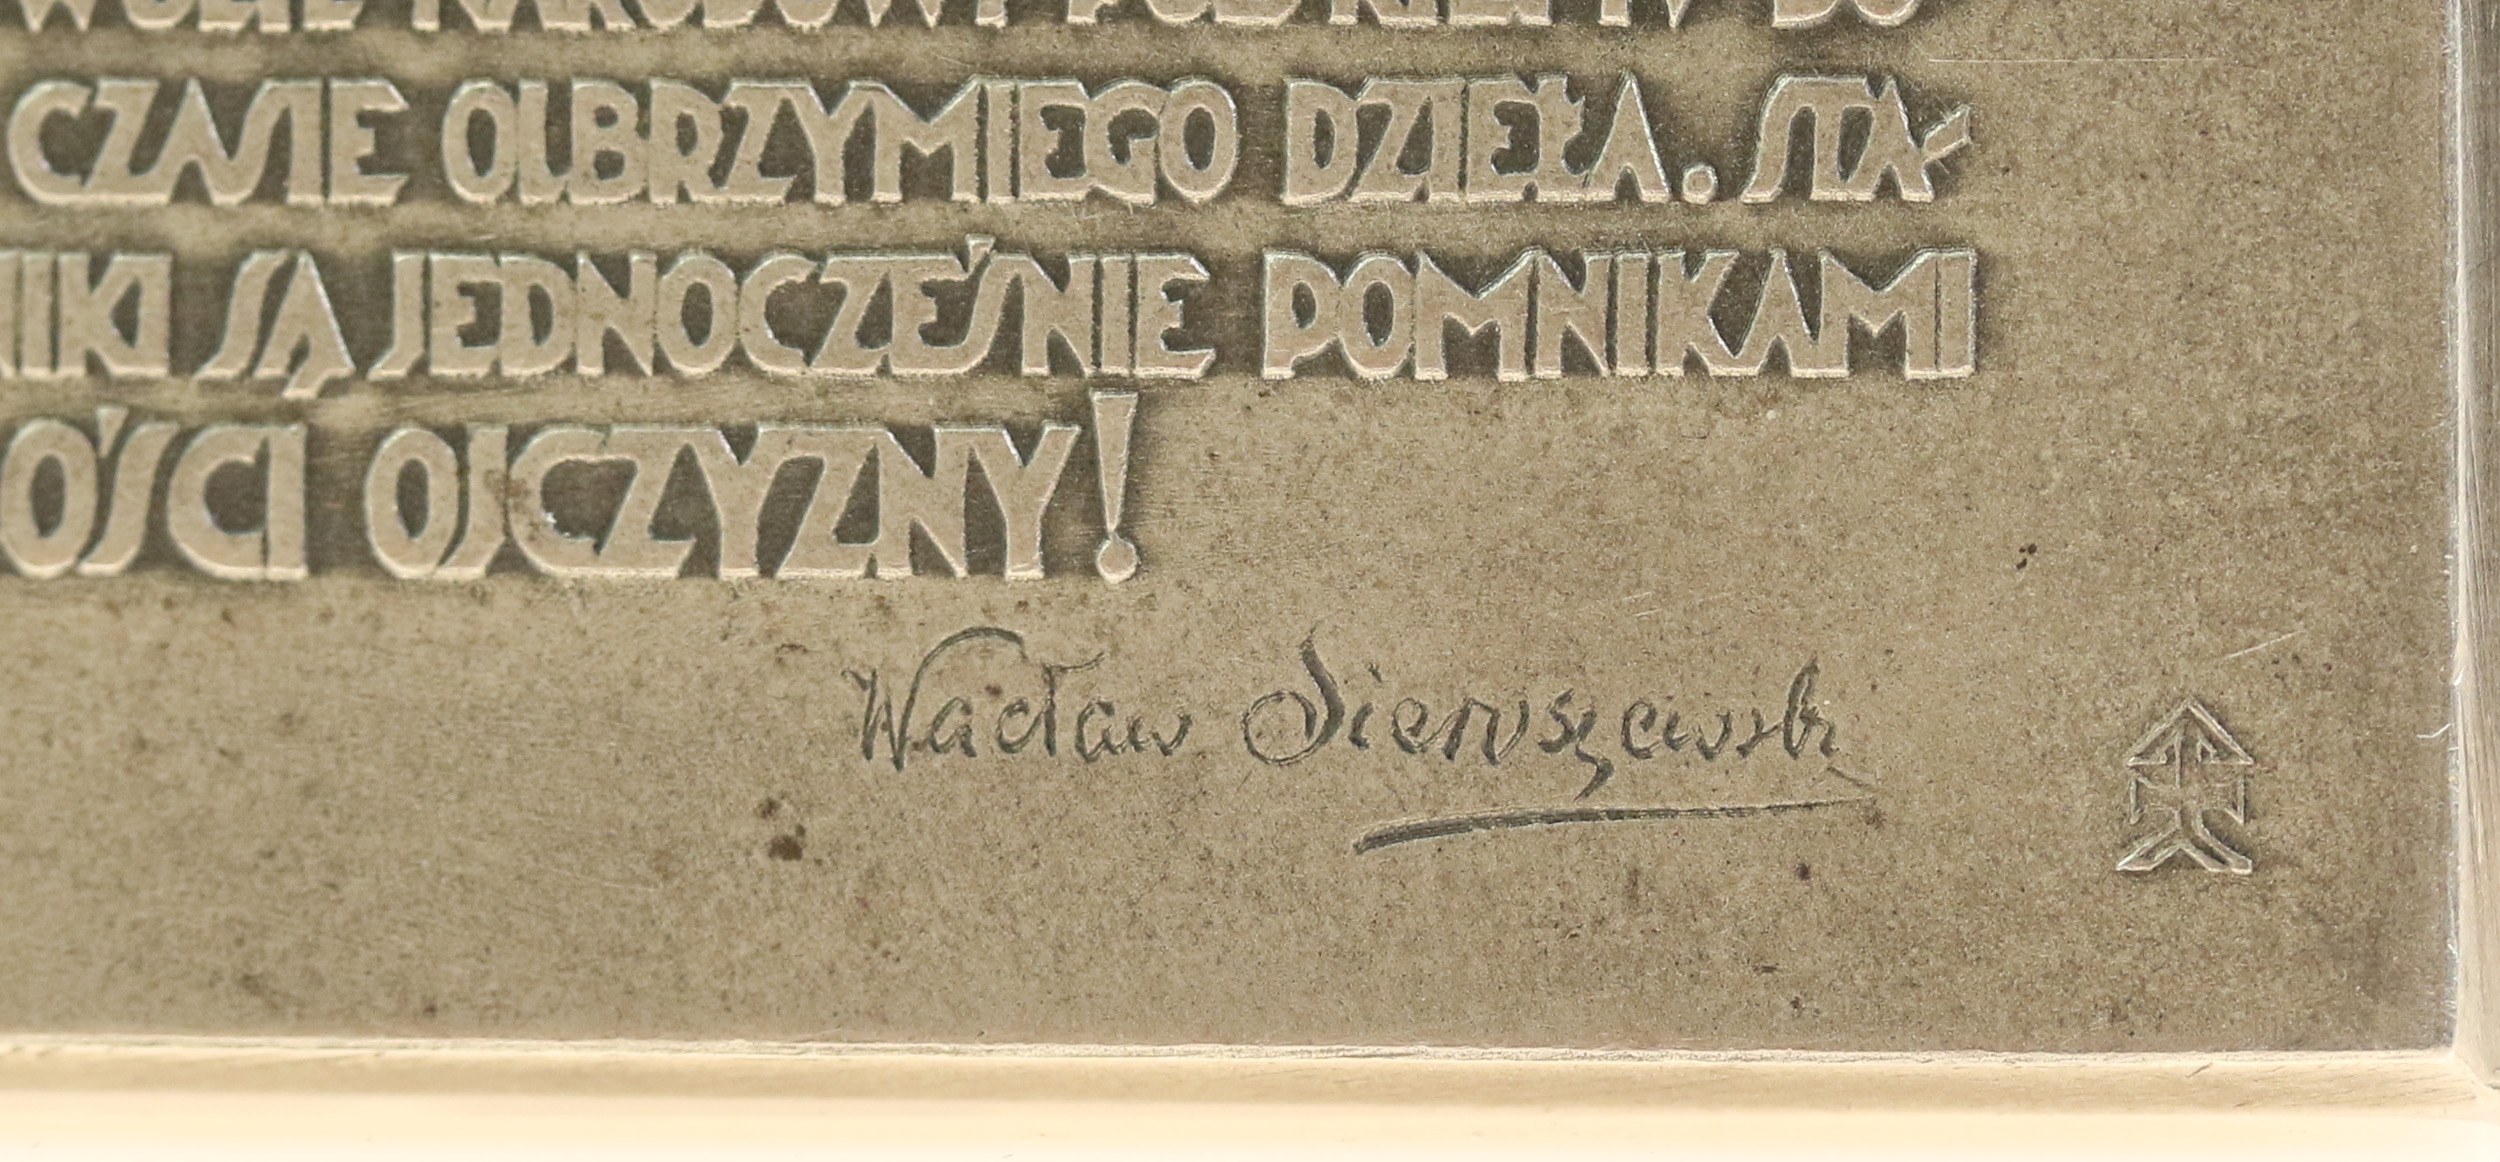 CZASIE OLBRZYMIEGO DZIEŁA. STA-
NIKI SĄ JEDNOCZEŚNIE POMNIKAMI
OŚCI OJCZYZNY!
Wacław Sieroszewski